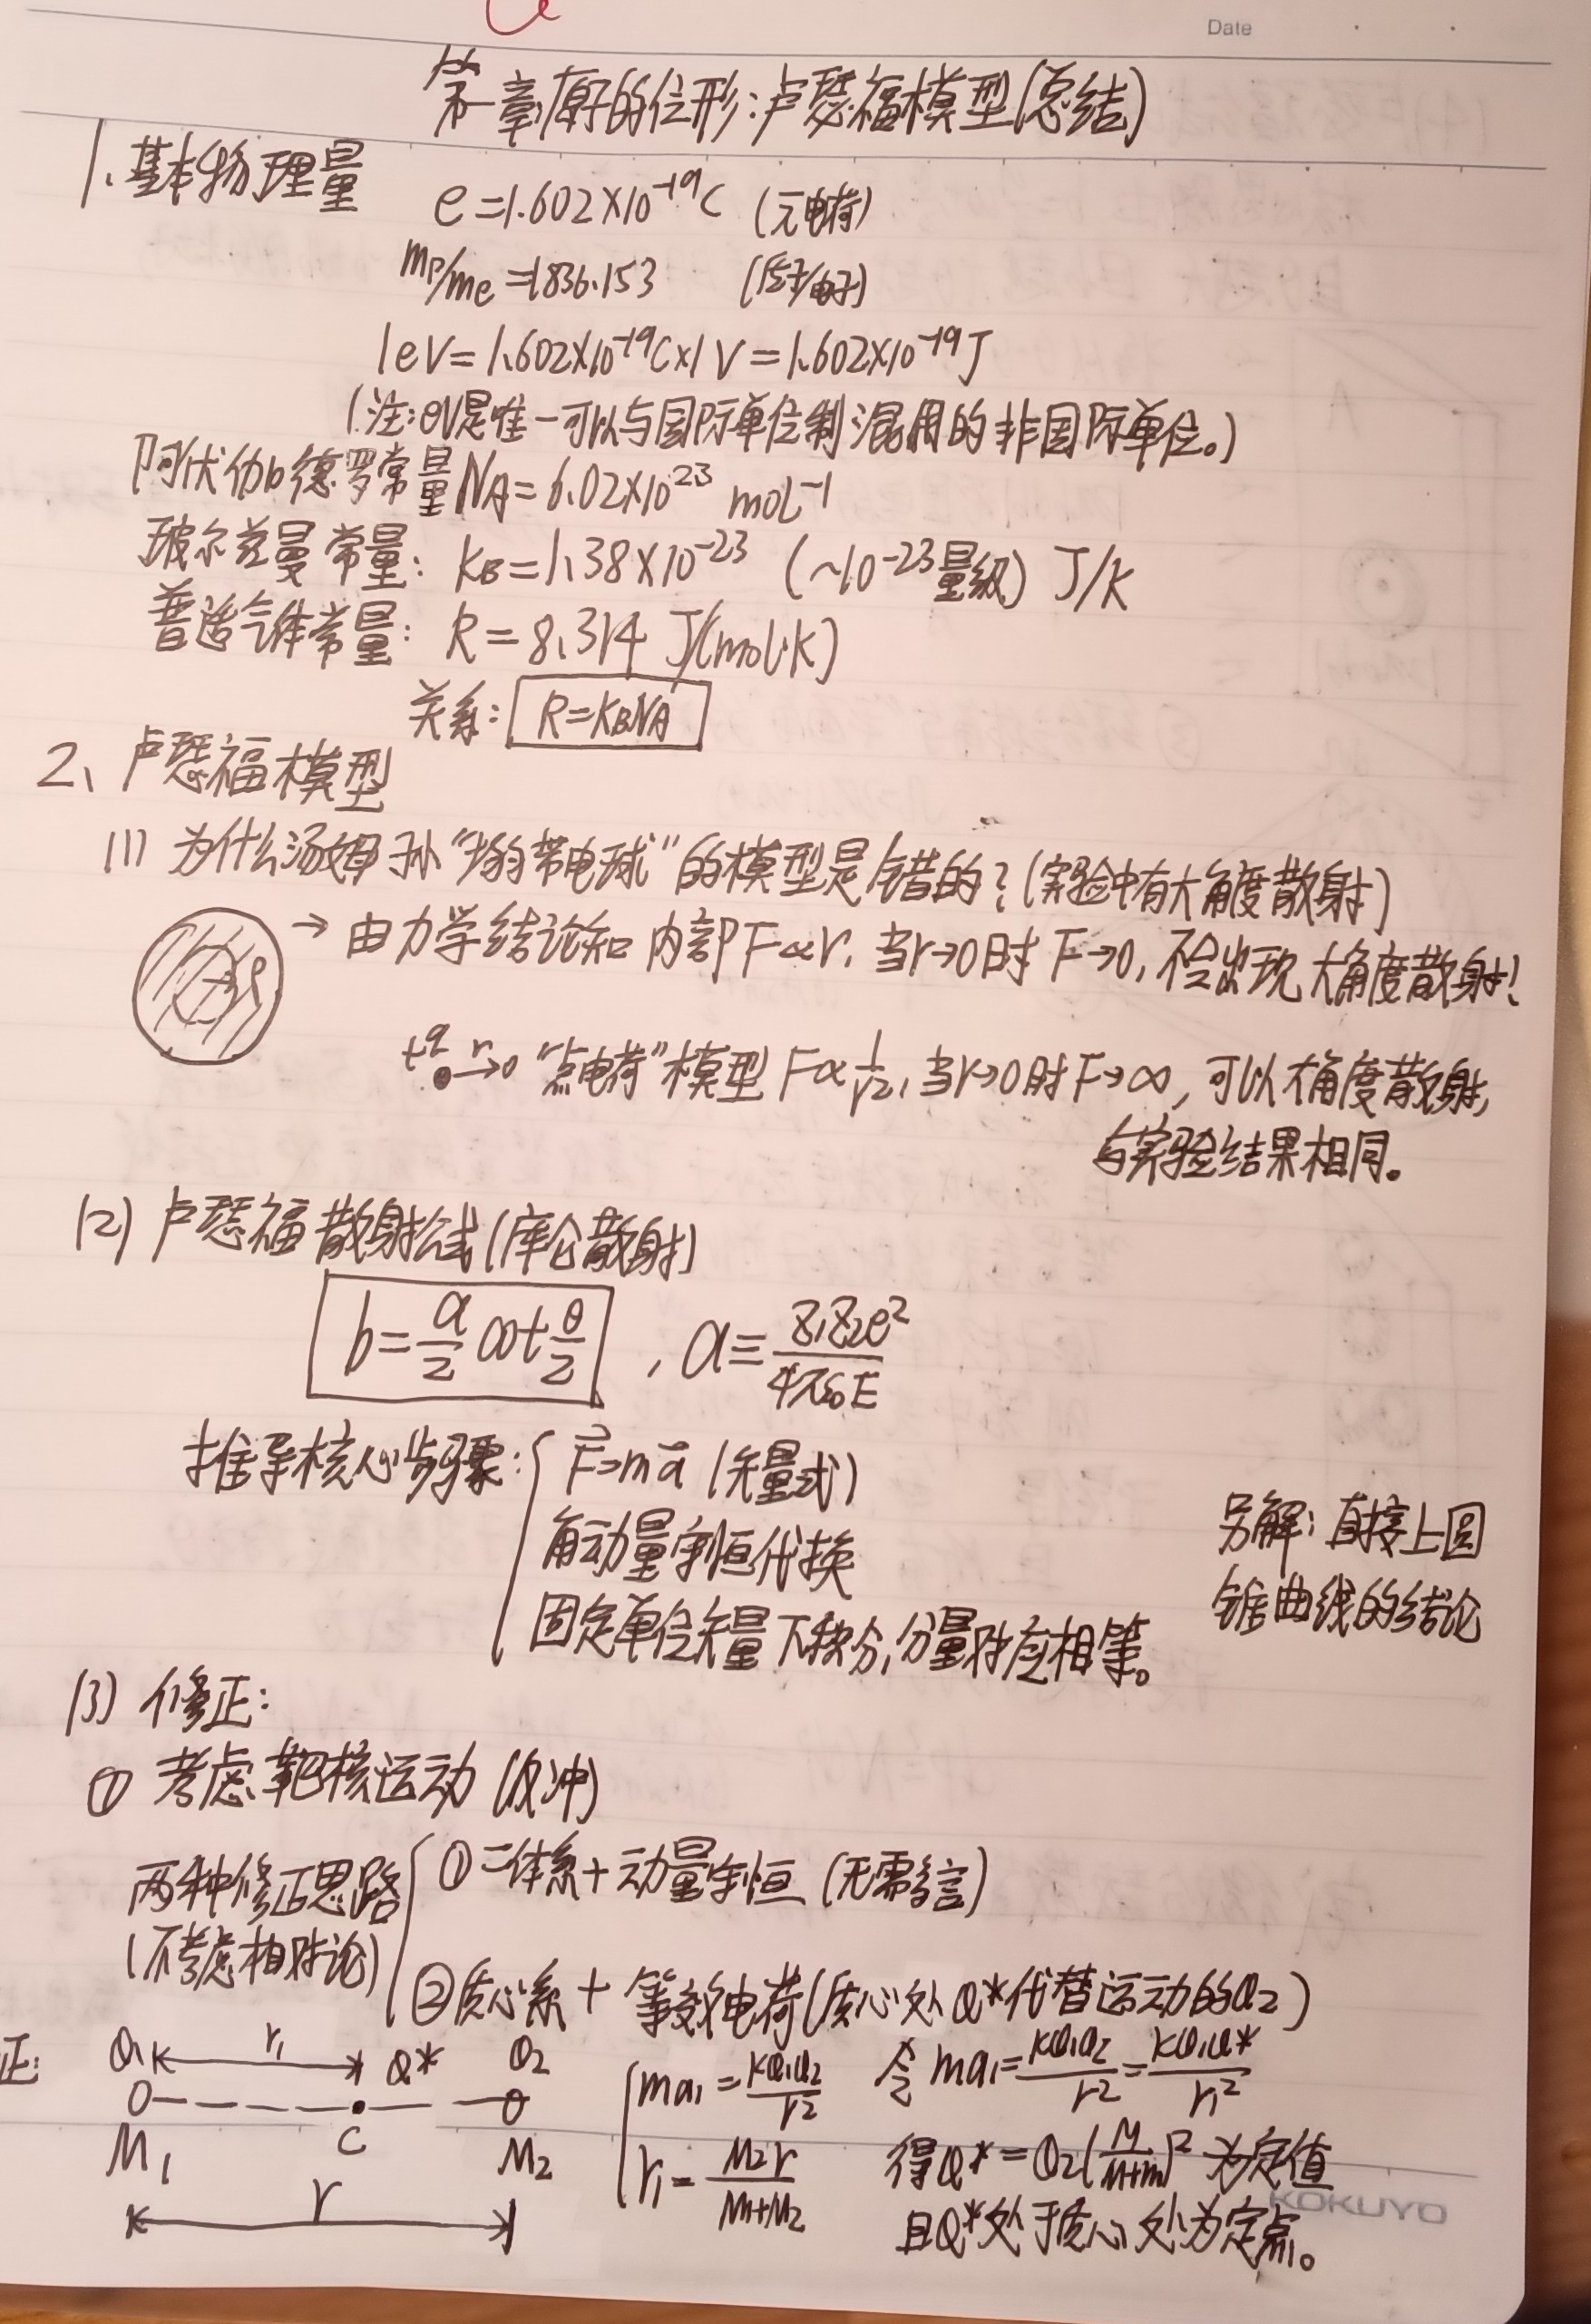 Date
第一章原子的位形:卢瑟福模型(总结)
1、基本物理量
e=1.602×10⁻¹⁹C (元电荷)
mp/me=1836.153 (质子/电子)
1eV=1.602×10⁻¹⁹C×1V=1.602×10⁻¹⁹J
(注:eV是唯一可以与国际单位制混用的非国际单位。)
阿伏伽德罗常量NA=6.02×10²³ mol⁻¹
玻尔兹曼常量: KB=1.38×10⁻²³ (~10⁻²³量级) J/K
普适气体常量: R=8.314 J/(mol·K)
关系: R=KBNA
2、卢瑟福模型
(1) 为什么汤姆孙“均匀带电球”的模型是错的?(实验中有大角度散射)
→ 由力学结论知 内部F∝r, 当r→0时 F→0, 不会出现大角度散射!
+q r “点电荷”模型 F∝1/r², 当r→0时F→∞, 可以大角度散射,
与实验结果相同。
(2) 卢瑟福散射公式(库仑散射)
b=a/2 cot θ/2 , a≡Z₁Z₂e²/4πε₀E
推导核心步骤: F=ma (矢量式)
角动量守恒代换
固定单位矢量下积分,分量对应相等。
另解: 直接上圆
锥曲线的结论
(3) 修正:
① 考虑靶核运动 (反冲)
两种修正思路
(不考虑相对论)
①二体系+动量守恒 (无需多言)
②质心系+等效电荷(质心处Q*代替运动的Q₂)
正:
Q₁ r₁ Q* Q₂
C
M₁ M₂
r
ma₁=KQ₁Q₂/r² 令 ma₁=KQ₁Q₂/r²=KQ₁Q*/r₁²
r₁=M₂r/M₁+M₂ 得Q*=Q₂(M/M+m)² 为定值
且Q*处于质心处为定点。
KOKUYO